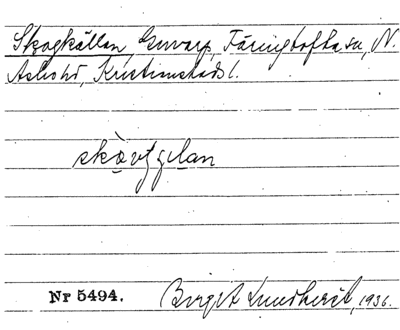 Skogkällan, Gunarp, Färingtofta sn, N.
Åsbo hd, Kristianstads l.
skòvʃɩlan
Nr 5494.
Birgit Lundkvist, 1936.